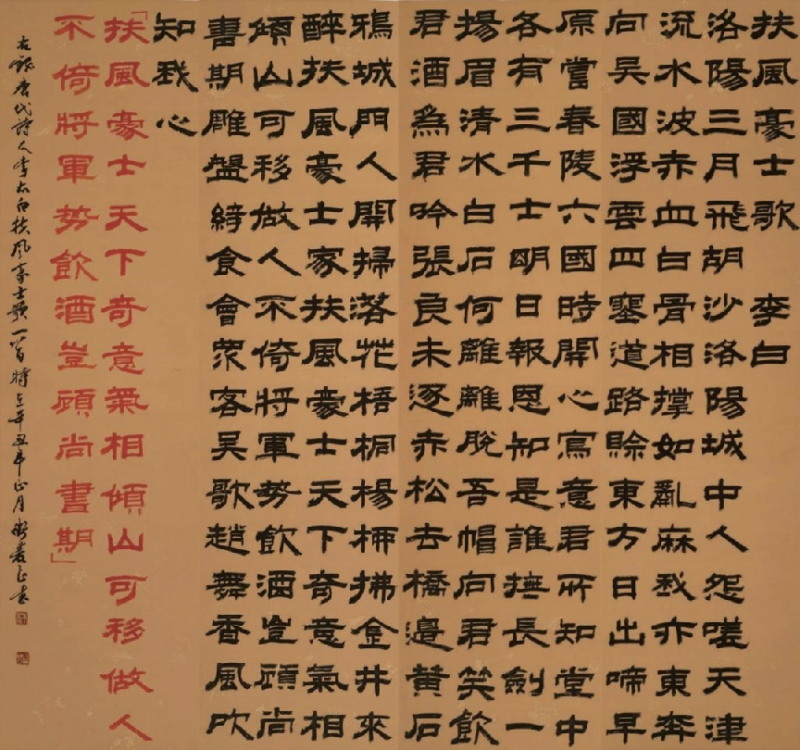 扶風豪士歌 李白
洛陽三月飛胡沙洛陽城中人怨嗟天津
流水波赤血白骨相撐如亂麻我亦東奔
向吳國浮雲四塞道路賒東方日出啼早
原嘗春陵六國時開心寫意君所知堂中
各有三千士明日報恩知是誰撫長劍一
揚眉清水白石何離離脫吾帽向君笑飲
君酒為君吟張良未逐赤松去橋邊黃石
鴉城門人開掃落花梧桐楊柳拂金井來
醉扶風豪士家扶風豪士天下奇意氣相
傾山可移做人不倚將軍勢飲酒豈顧尚
書期雕盤綺食會眾客吳歌趙舞香風吹
知我心
「扶風豪士天下奇意氣相傾山可移做人
不倚將軍勢飲酒豈顧尚書期」
右錄唐代詩人李太白扶風豪士歌一首時在辛丑年正月